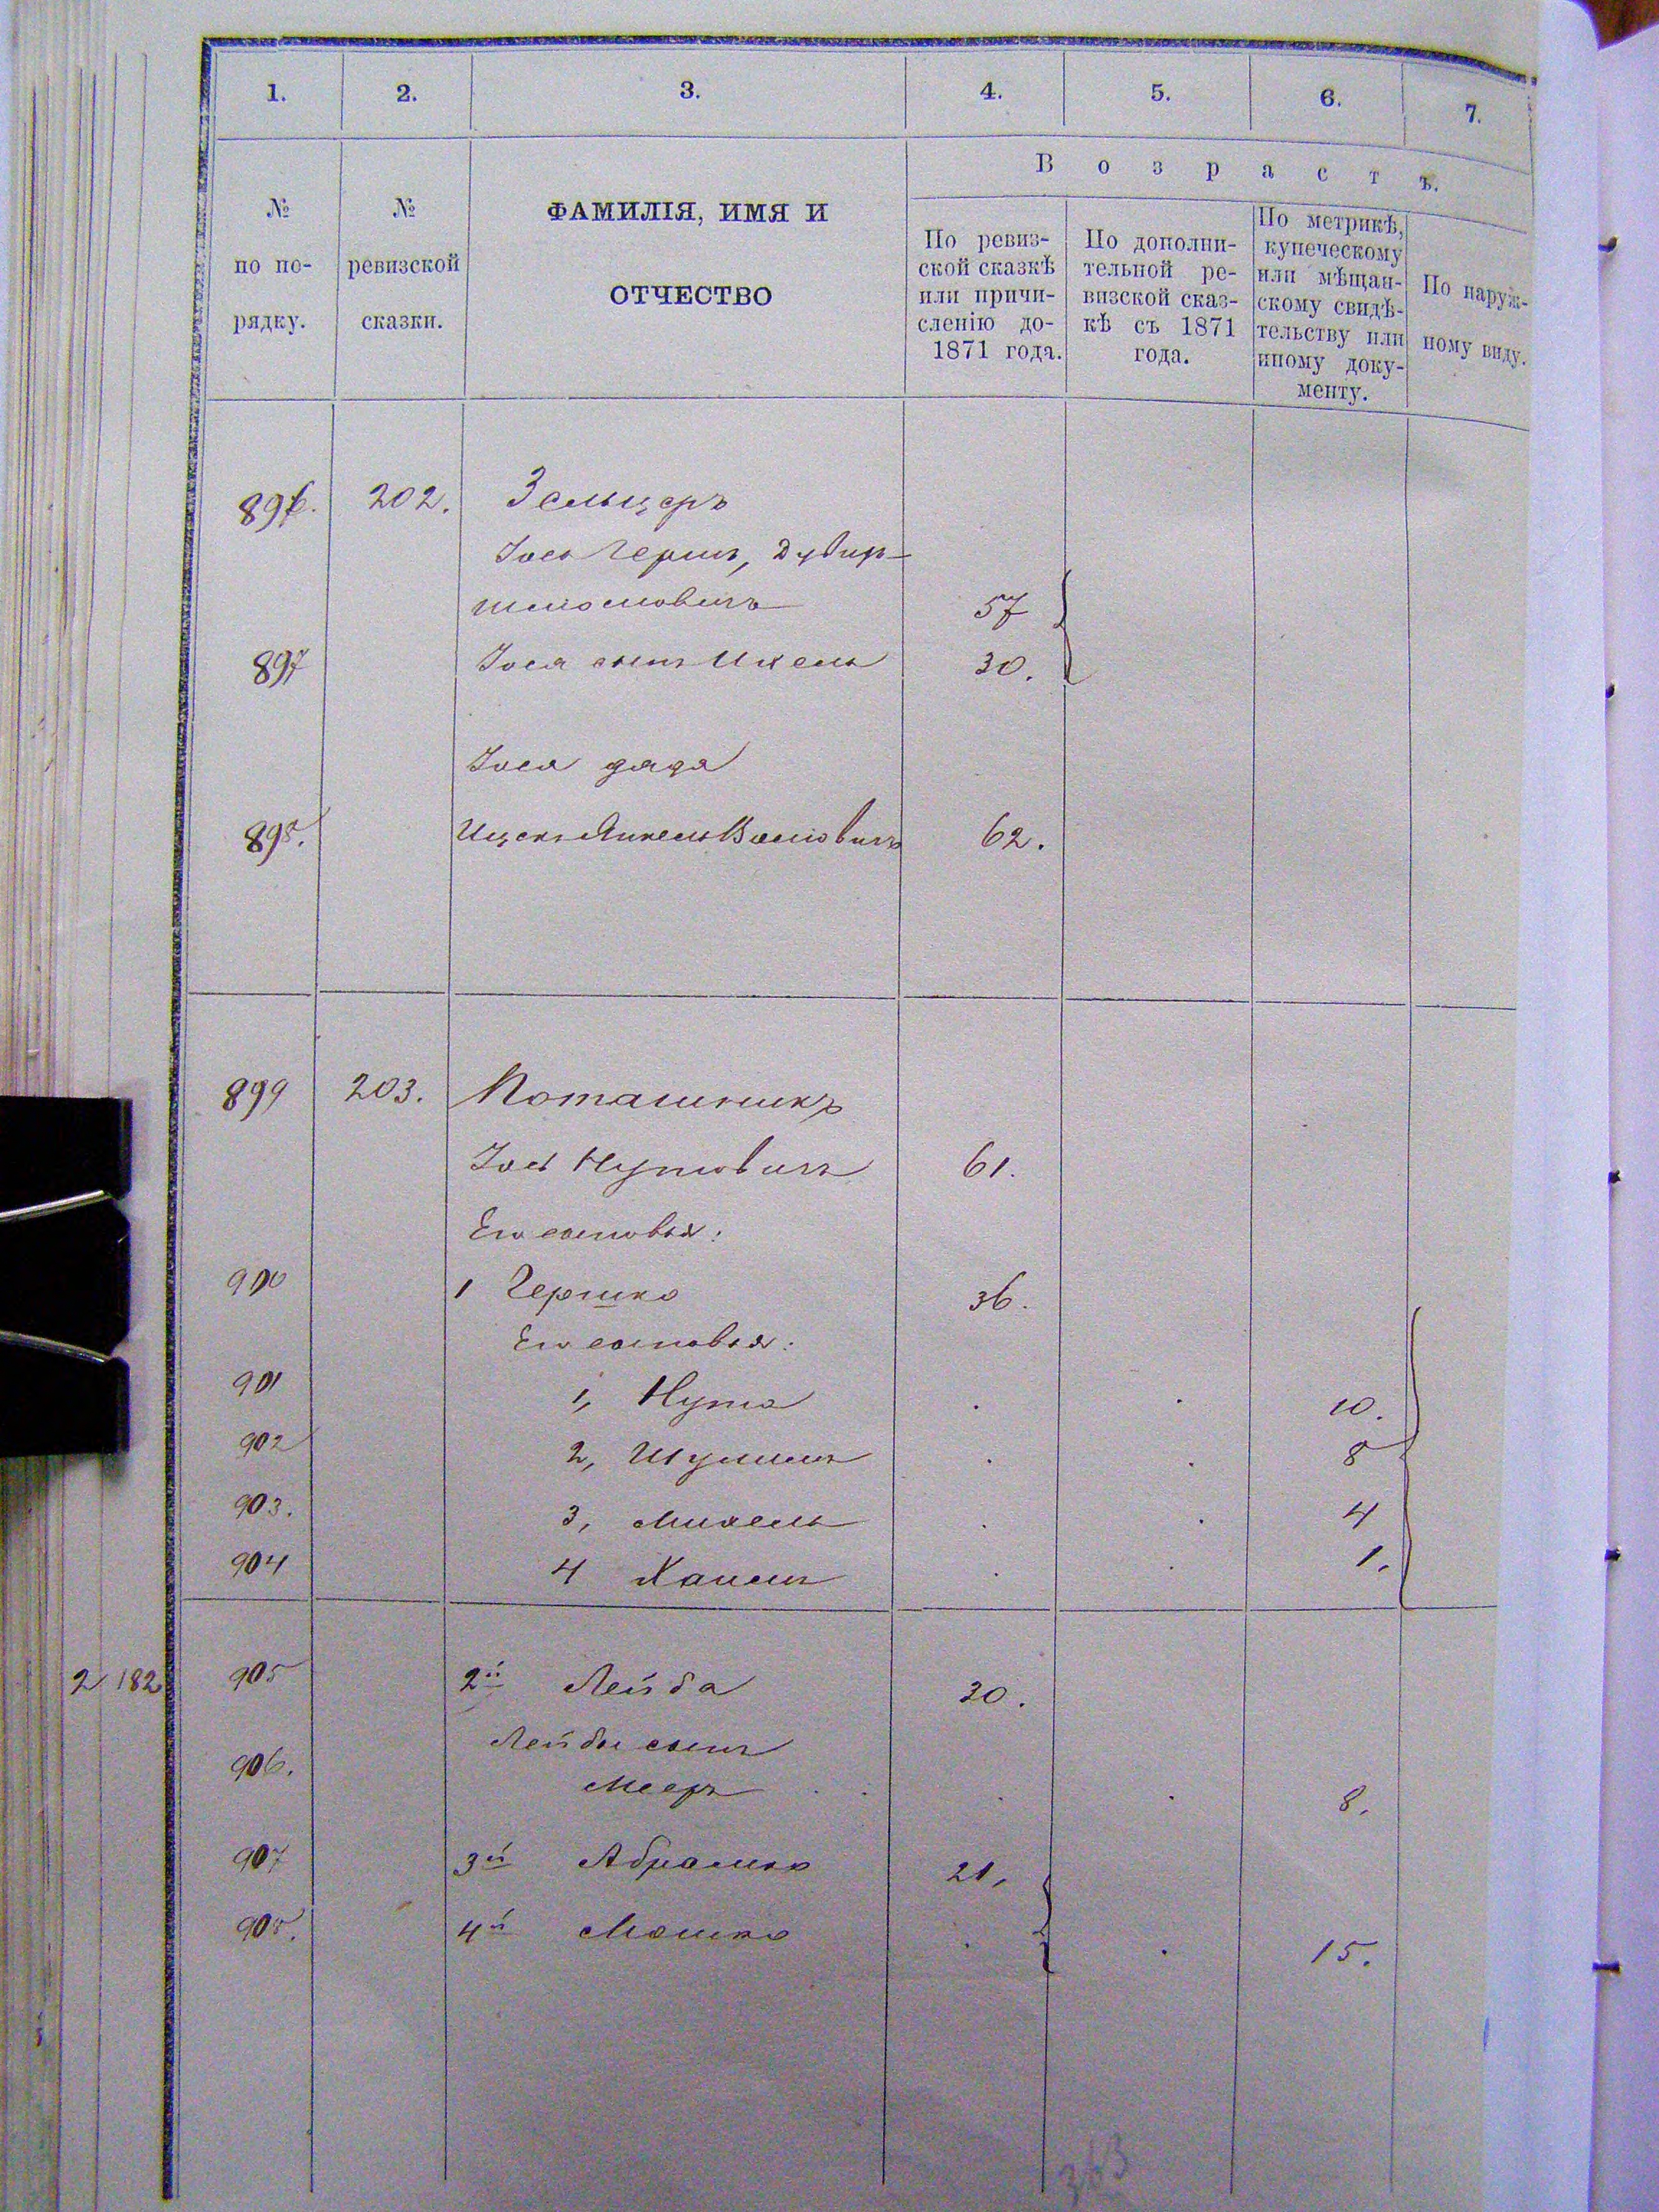 1. 2. 3. 4. 5. 6. 7.
Возрастъ.
№ по по-рядку.
№ ревизской сказки.
ФАМИЛІЯ, ИМЯ И
ОТЧЕСТВО
По ревиз-
ской сказкѣ
или причи-
сленію до-
1871 года.
По дополни-
тельной ре-
визской сказ-
кѣ съ 1871
года.
По метрикѣ,
купеческому
или мѣщан-
скому свидѣ-
тельству или
иному доку-
менту.
По наруж-
ному виду.
896. 202. Зельцеръ
Іось Гершъ, Дувидъ
Шліомовичъ 57
897 Іося сынъ Ихель 30.
Іося дядя
898. Ицекъ Янкель Волковичъ 62.
899 203. Поташникъ
Іось Нутовичъ 61.
Его сыновья:
900 1 Гершко 36.
Его сыновья:
901 1, Нута 10.
902 2, Шулимъ 8
903. 3, Михель 4
904 4 Хаимъ 1.
2182 905 2й Лейба 30.
906. Лейбы сынъ
Мееръ 8.
907 3й Абрамко 21,
908. 4й Мошко 15.
363